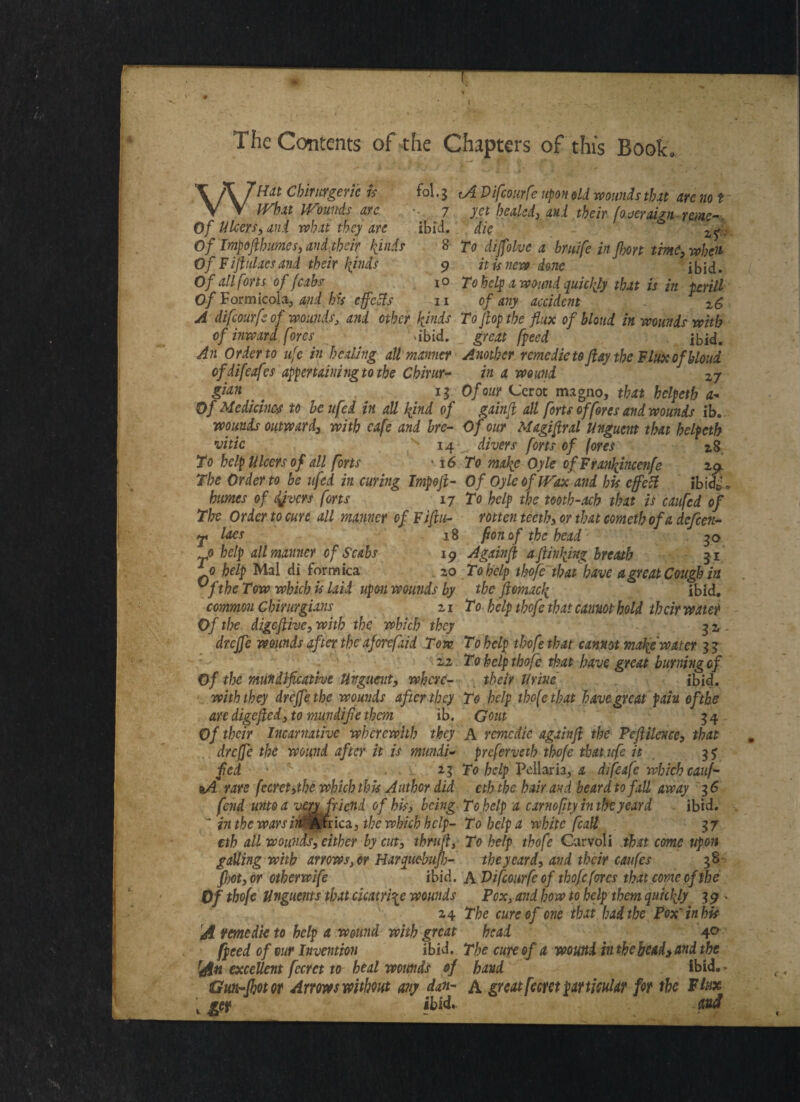 The Contents of the Chapters of this Book.
WHat Chirurgerie is fol. 3
What Wounds are 7
Of Ulcers, and what they are ibid.
Of Imposthumes, and their kinds 8
Of Fistulaes and their kinds 9
Of all sorts of scabs 10
Of Formicola, and his effects 11
A discourse of wounds, and other kinds
of inward sores ibid.
An Order to use in healing all manner
of diseases appertaining to the Chirur-
gian 13
Of Medicines to be used in all kind of
wounds outward, with ease and bre-
vitie 14
To help Ulcers of all sorts 16
The Order to be used in curing Impost-
humes of divers sorts 17
The Order to cure all manner of Fistu-
laes 18
To help all manner of Scabs 19
To help Mal di formica 20
Of the Tow which is laid upon wounds by
common Chirurgians 21
Of the digestive, with the which they
dresse wounds after the aforesaid Tow
22
Of the mundificative Unguent, where-
with they dresse the wounds after they
are digested, to mundifie them ib.
Of their Incarnative wherewith they
dresse the wound after it is mundi-
fied 23
A rare secret, the which this Author did
send unto a very friend of his, being
in the wars in Africa, the which help-
eth all wounds, either by cut, thrust,
galling with arrows, or Harquebush-
shot, or otherwise ibid.
Of those Unguents that cicatrize wounds
24
A remedie to help a wound with great
speed of our Invention ibid.
An excellent secret to heal wounds of
Gun-shot or Arrows without any dan-
ger ibid.
A Discourse upon old wounds that are not
yet healed, and their soveraign reme-
die 25
To dissolve a bruise in short time, when
it is new done ibid.
To help a wound quickly that is in perill
of any accident 26
To stop the flux of bloud in wounds with
great speed ibid.
Another remedie to stay the Flux of bloud
in a wound 27
Of our Cerot magno, that helpeth a-
gainst all sorts of sores and wounds ib.
Of our Magistral Unguent that helpeth
divers sorts of sores 28
To make Oyle of Frankincense 29
Of Oyle of Wax and his effect ibid.
To help the tooth-ach that is caused of
rotten teeth, or that cometh of a descen-
sion of the head 30
Against a stinking breath 31
To help those that have a great Cough in
the stomack ibid.
To help those that cannot hold their water
32
To help those that cannot make water 33
To help those that have great burning of
their Urine ibid.
To help those that have great pain of the
Gout 34
A remedie against the Pestilence, that
preserveth those that use it 35
To help Pellaria, a disease which caus-
eth the hair and beard to fall away 36
To help a carnosity in the yeard ibid.
To help a white scall 37
To help those Carvoli that come upon
the yeard, and their causes 38
A Discourse of those sores that come of the
Pox, and how to help them quickly 39
The cure of one that had the Pox in his
head 40
The cure of a wound in the head, and the
hand ibid.
A great secret particular for the Flux
and